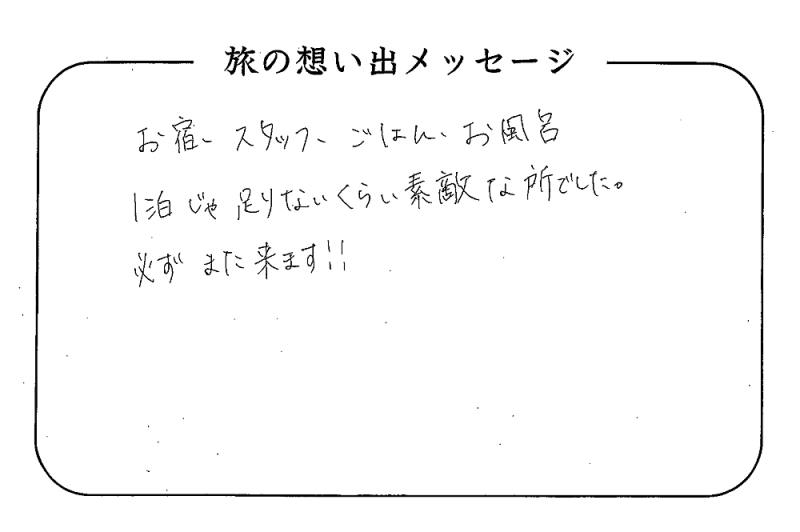 旅の想い出メッセージ
お宿、スタッフ、ごはん、お風呂
1泊じゃ足りないくらい素敵な所でした。
必ずまた来ます!!